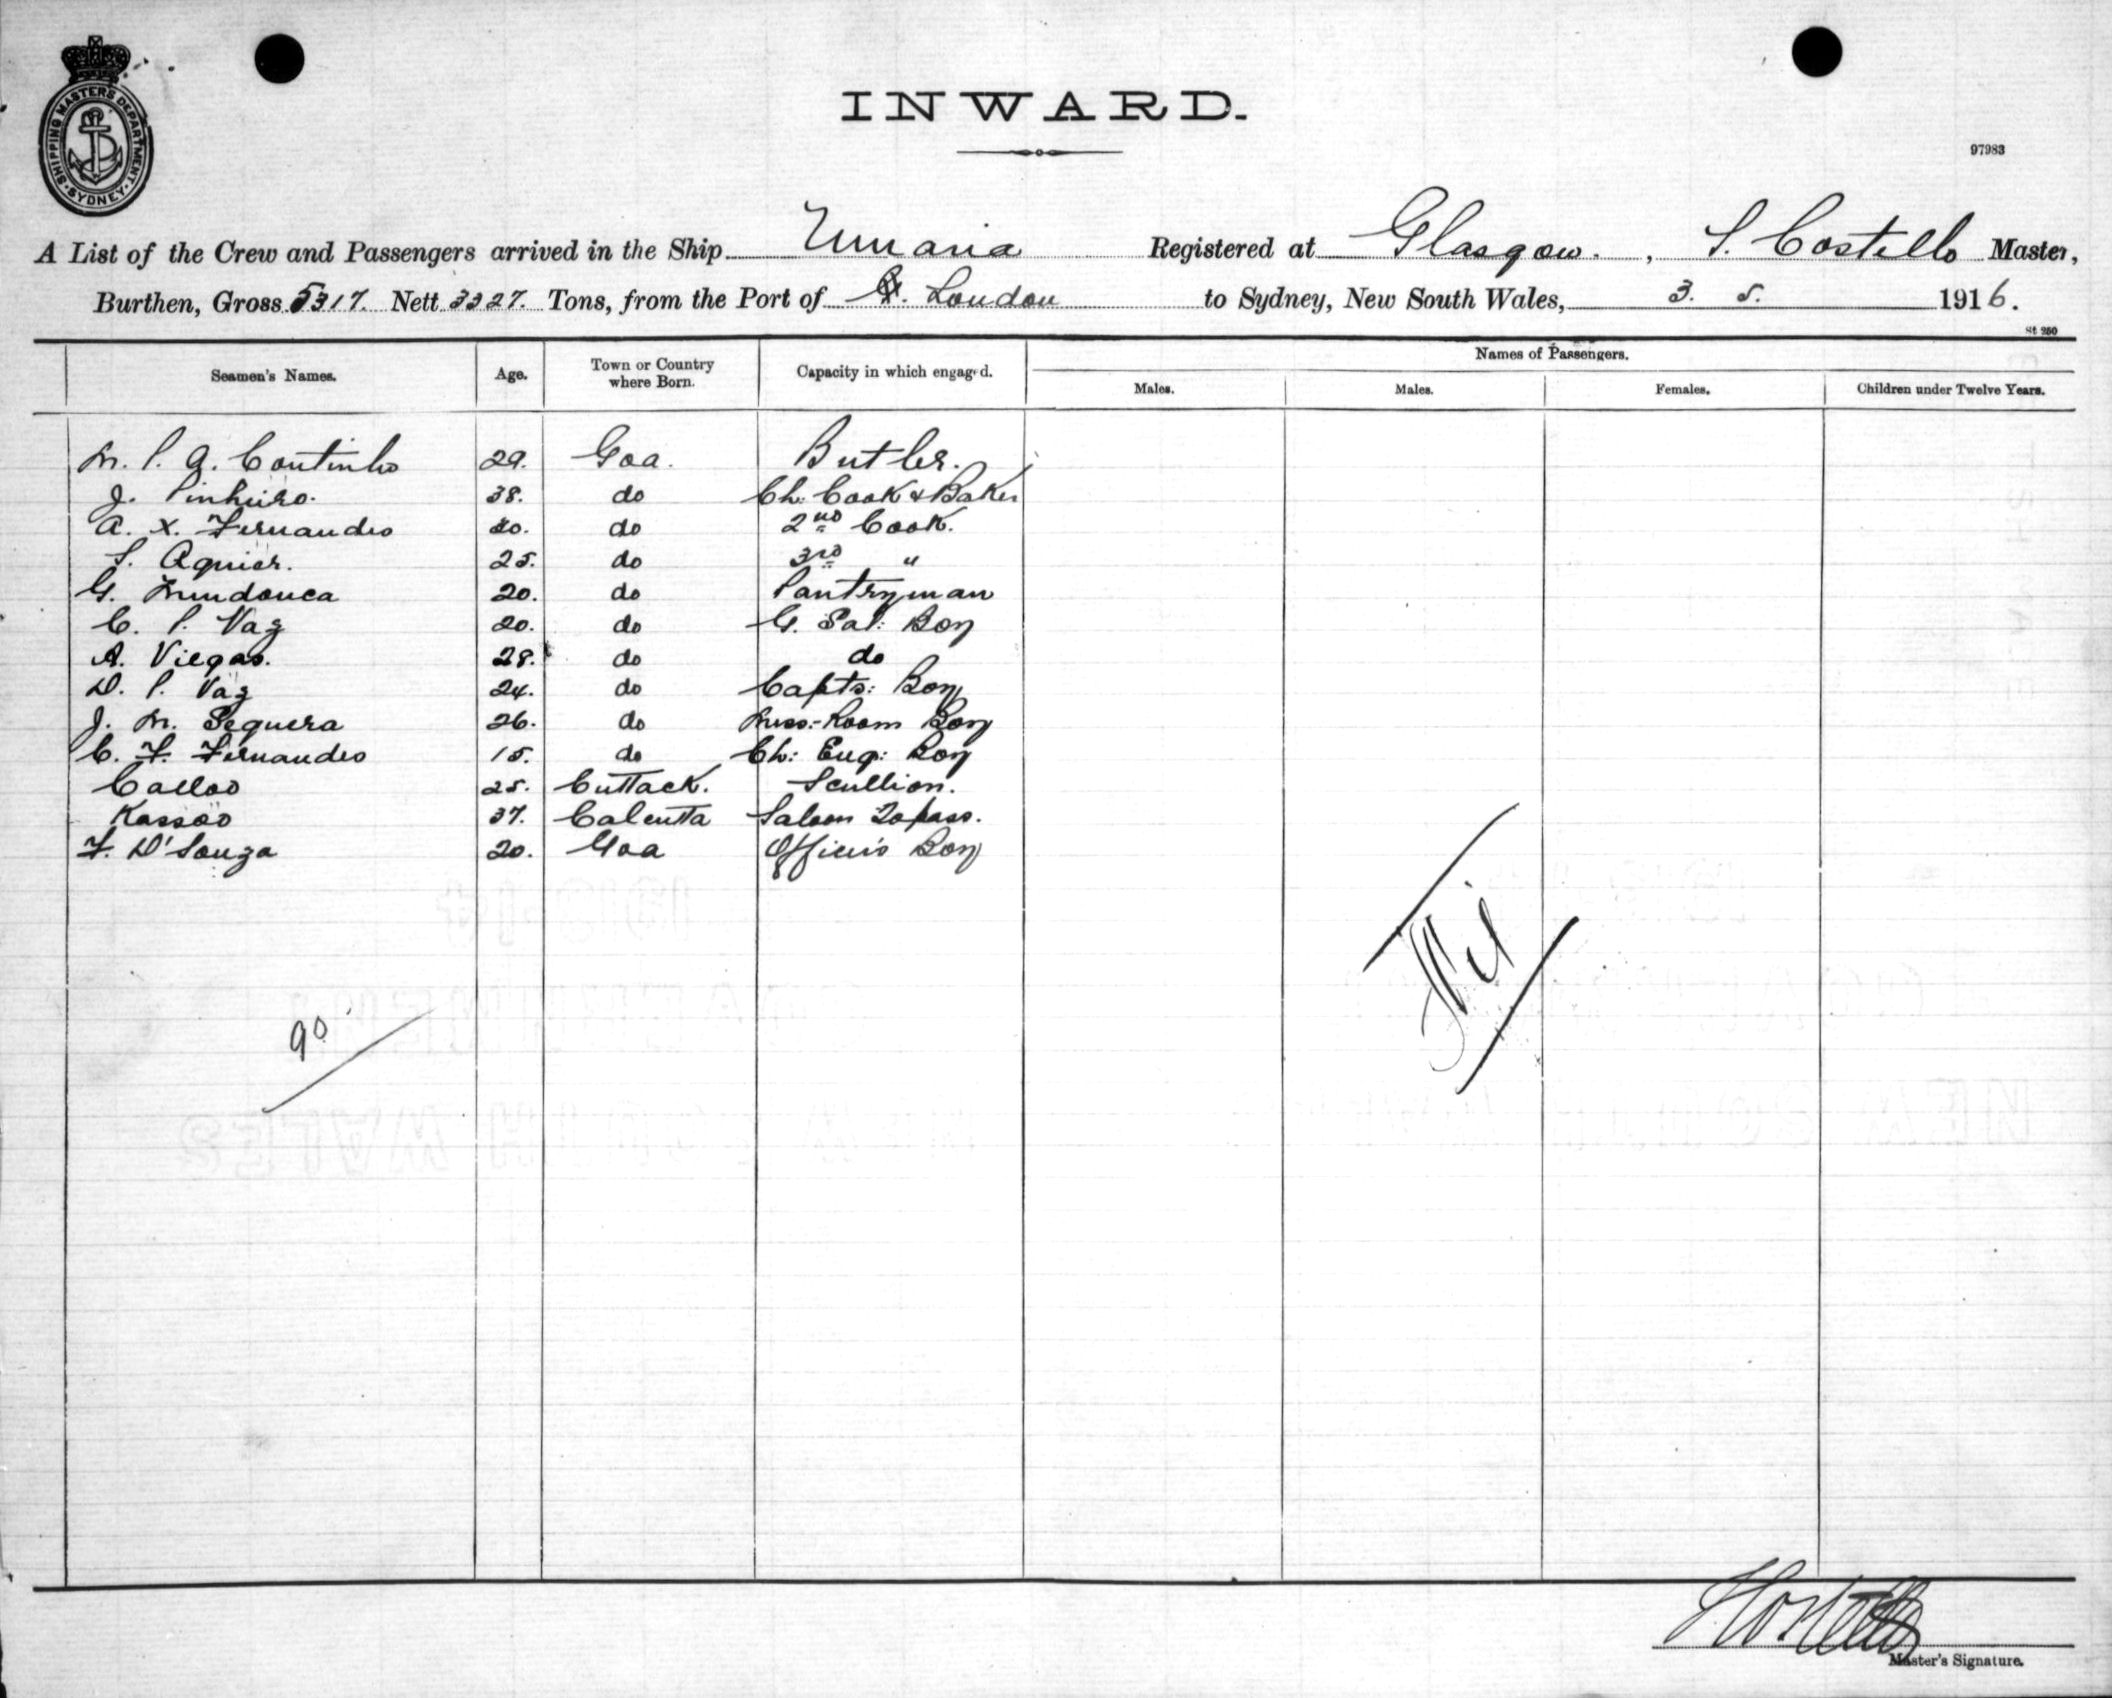 SHIPPING MASTERS DEPARTMENT · SYDNEY ·
INWARD.
97983
A List of the Crew and Passengers arrived in the Ship Umaria Registered at Glasgow. , S. Costello Master,
Burthen, Gross 5317. Nett 3327. Tons, from the Port of London to Sydney, New South Wales, 3. 5. 1916.
St 250
Seamen's Names. Age. Town or Country where Born. Capacity in which engaged. Names of Passengers.
Males. Males. Females. Children under Twelve Years.
M. P. A. Coutinho 29. Goa. Butler.
J. Pinheiro. 38. do Ch: Cook & Baker
A. X. Fernandes do 2nd Cook.
S. Aguier. 25. do 3rd "
G. Mendonca 20. do Pantryman
C. P. Vaz 20. do G. Sal: Boy
A. Viegas. 28. do do
D. P. Vaz 24. do Capts: Boy
J. M. Sequera 26. do Mess:-Room Boy
C. F. Fernandes 15. do Ch: Eng: Boy
Calloo 25. Cuttack. Scullion.
Kassoo 37. Calcutta Saloon Topass.
F. D'Souza 20. Goa Officers Boy
Nil
90
Master's Signature.